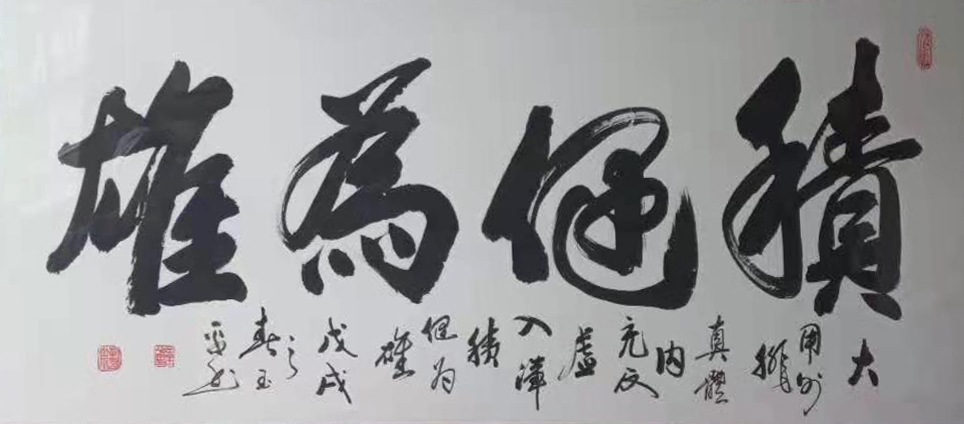 積健為雄
大
用外
腓
真體
内
充反
虛
入渾
積
健为
雄
戊戌
之
春玉